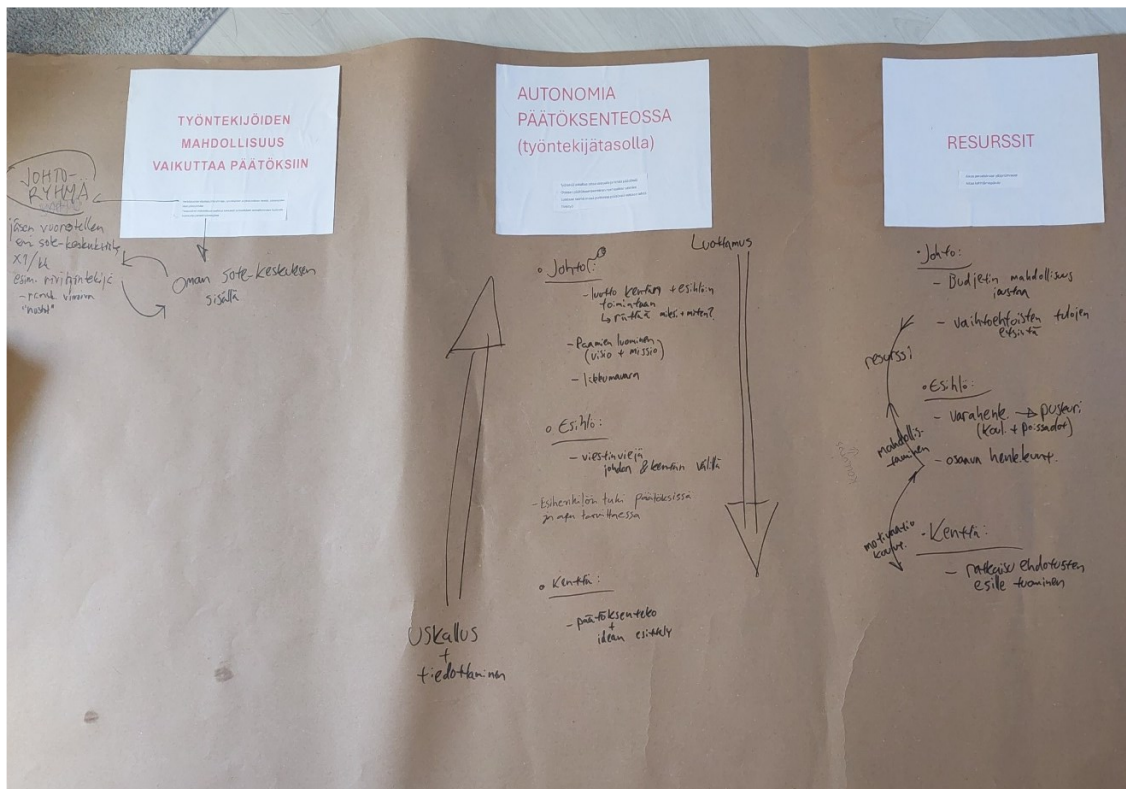 TYÖNTEKIJÖIDEN
MAHDOLLISUUS
VAIKUTTAA PÄÄTÖKSIIN
JOHTO-
RYHMÄ
jäsen vuorotellen
eri sote-keskuksista
x1/kk
esim. rivityöntekijä
Oman sote-keskuksen
sisällä
AUTONOMIA
PÄÄTÖKSENTEOSSA
(työntekijätasolla)
Luottamus
• Johto:
- luotto kentän + esihlöin
toimintaan
↳ riittää miksi + miten?
- Raamien luominen
(visio + missio)
- liikkumavara
• Esihlö:
- viestinviejä
johdon & kentän välillä
- Esihenkilön tuki päätöksissä
ja apu tarvittaessa
• Kenttä:
- päätöksenteko
+
idean esittely
Uskallus
+
tiedottaminen
RESURSSIT
• Johto:
- Budjetin mahdollisuus
joustaa
- vaihtoehtoisten tulojen
etsintä
resurssi
• Esihlö:
- varahenk. → puskuri
(koul. + poissaolot)
mahdollis-
taminen
- osaava henkkunt.
motivaatio
• Kenttä:
- ratkaisuehdotusten
esille tuominen